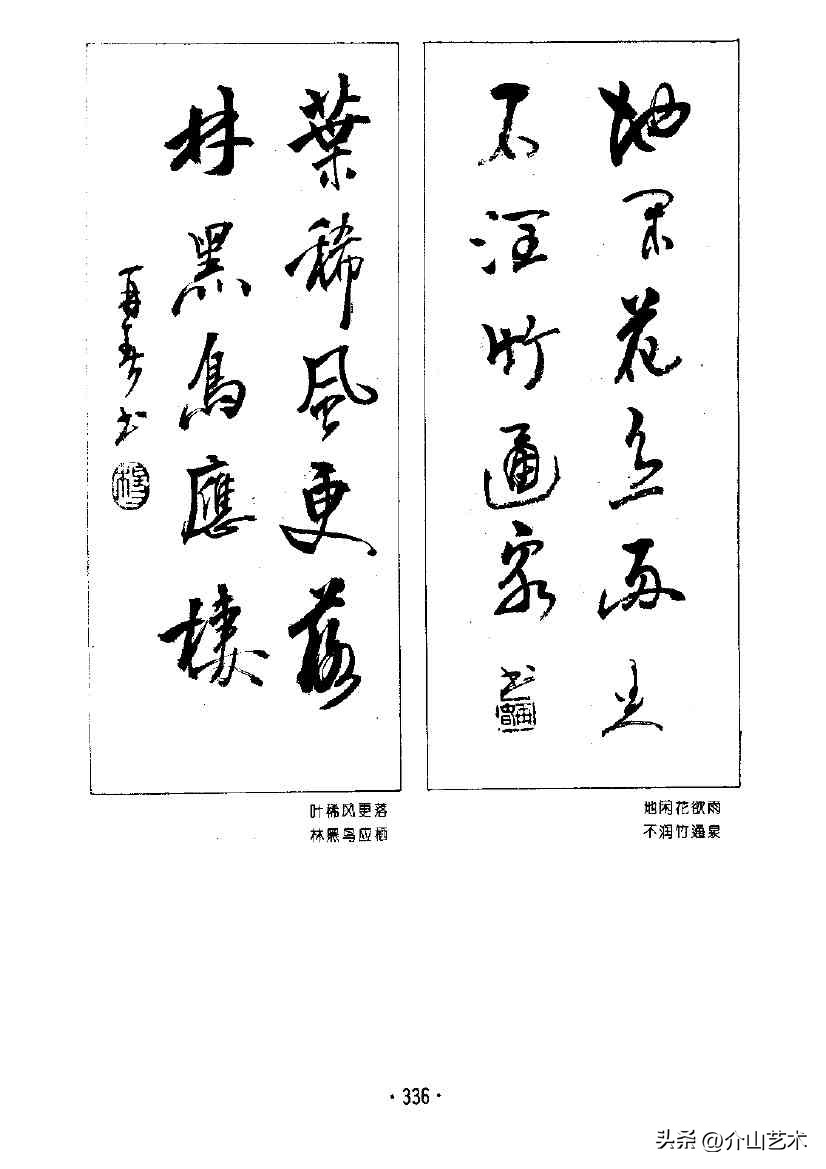 地閑花雨
石潤竹通泉
书
地闲花欲雨
不润竹通泉
葉稀風更落
林黑鳥應棲
书
叶稀风更落
林黑鸟应栖
·336·
头条 @介山艺术